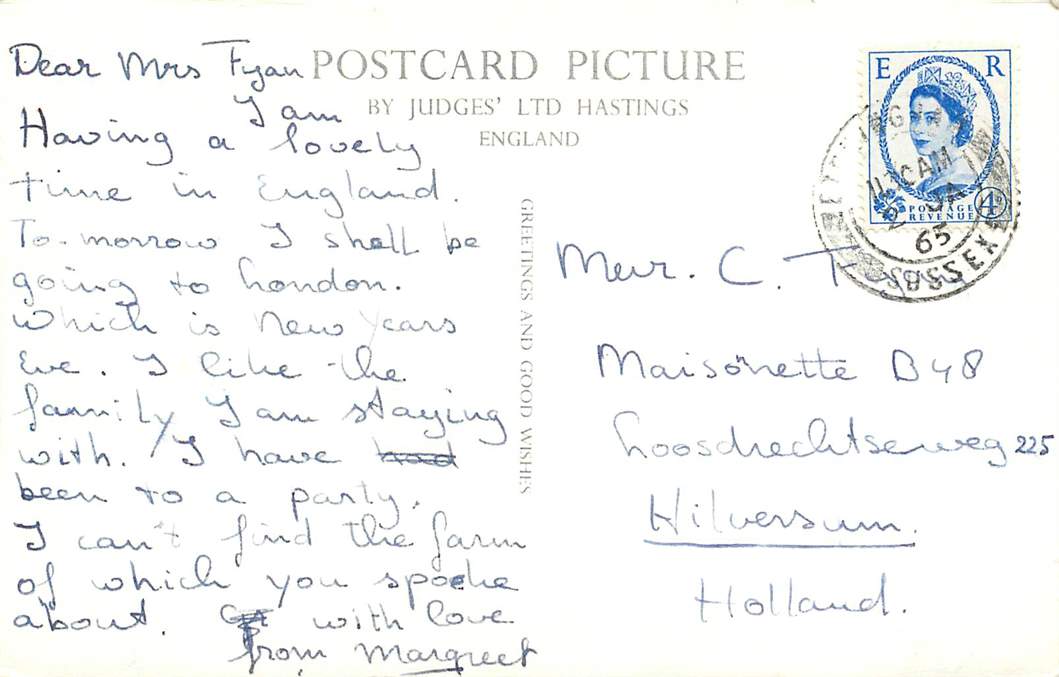 Dear Mrs Fyan
I am
Having a lovely
time in England.
To-morrow I shall be
going to London.
Which is New Years
Eve. I like the
family I am staying
with. I have had
been to a party.
I can't find the farm
of which you spoeke
about. with love
from Margreet
POSTCARD PICTURE
BY JUDGES' LTD HASTINGS
ENGLAND
GREETINGS AND GOOD WISHES
E R
POSTAGE
REVENUE 4D
11.10AM
2 JA
65
SUSSEX
Mevr. C.
Maisonette B48
Loosdrechtseweg 225
Hilversum.
Holland.